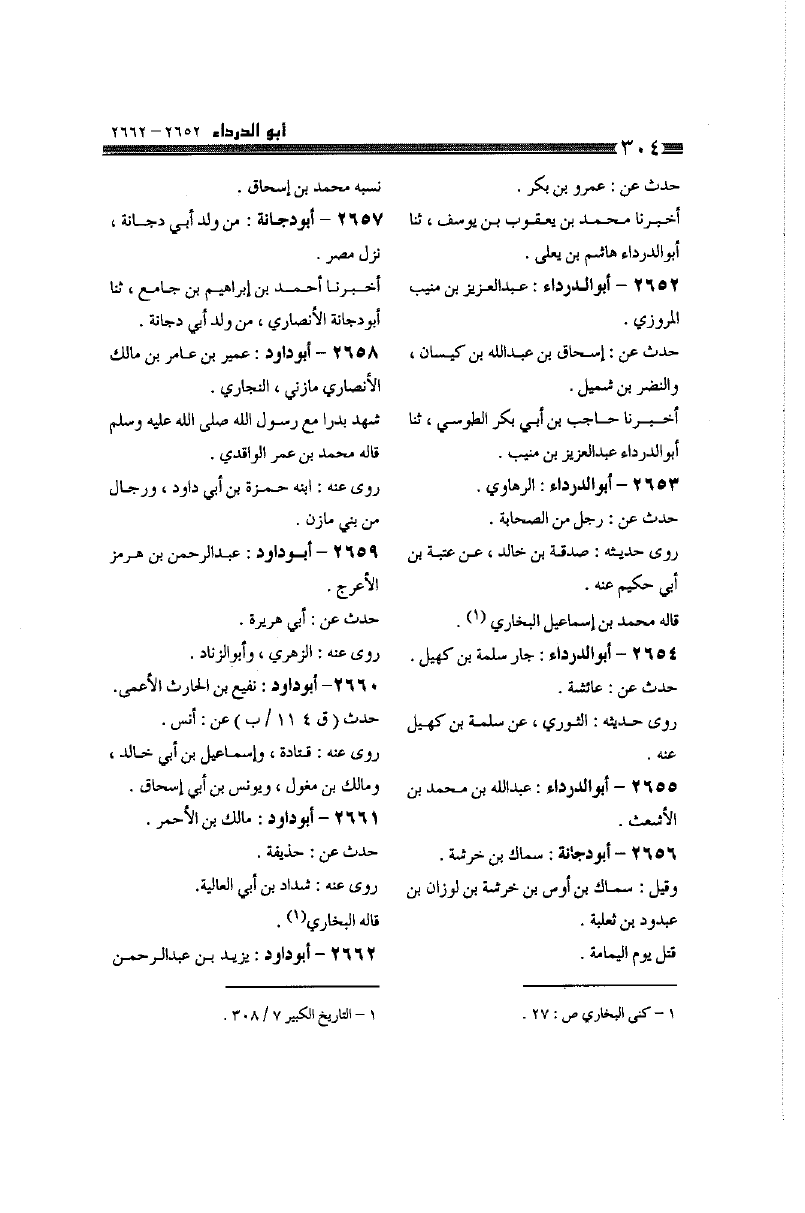 أبو الدرداء ٢٦٥٢ – ٢٦٦٢
٣٠٤
حدث عن : عمرو بن بكر .
أخبرنا محمد بن يعقوب بن يوسف ، ثنا
أبوالدرداء هاشم بن يعلى .
٢٦٥٢ – أبوالدرداء : عبدالعزيز بن منيب
المروزي .
حدث عن : إسحاق بن عبدالله بن كيسان ،
والنضر بن شميل .
أخبرنا حاجب بن أبي بكر الطوسي ، ثنا
أبوالدرداء عبدالعزيز بن منيب .
٢٦٥٣ – أبوالدرداء : الرهاوي .
حدث عن : رجل من الصحابة .
روى حديثه : صدقة بن خالد ، عن عتبة بن
أبي حكيم عنه .
قاله محمد بن إسماعيل البخاري (١) .
٢٦٥٤ – أبوالدرداء : جار سلمة بن كهيل .
حدث عن : عائشة .
روى حديثه : الثوري ، عن سلمة بن كهيل
عنه .
٢٦٥٥ – أبوالدرداء : عبدالله بن محمد بن
الأشعث .
٢٦٥٦ – أبودجانة : سماك بن خرشة .
وقيل : سماك بن أوس بن خرشة بن لوزان بن
عبدود بن ثعلبة .
قتل يوم اليمامة .
١ – كنى البخاري ص : ٢٧ .
نسبه محمد بن إسحاق .
٢٦٥٧ – أبودجانة : من ولد أبي دجانة ،
نزل مصر .
أخبرنا أحمد بن إبراهيم بن جامع ، ثنا
أبودجانة الأنصاري ، من ولد أبي دجانة .
٢٦٥٨ – أبوداود : عمير بن عامر بن مالك
الأنصاري مازني ، النجاري .
شهد بدرا مع رسول الله صلى الله عليه وسلم
قاله محمد بن عمر الواقدي .
روى عنه : ابنه حمزة بن أبي داود ، ورجال
من بني مازن .
٢٦٥٩ – أبوداود : عبدالرحمن بن هرمز
الأعرج .
حدث عن : أبي هريرة .
روى عنه : الزهري ، وأبوالزناد .
٢٦٦٠ – أبوداود : نفيع بن الحارث الأعمى.
حدث ( ق ١١٤ / ب ) عن : أنس .
روى عنه : قتادة ، وإسماعيل بن أبي خالد ،
ومالك بن مغول ، ويونس بن أبي إسحاق .
٢٦٦١ – أبوداود : مالك بن الأحمر .
حدث عن : حذيفة .
روى عنه : شداد بن أبي العالية.
قاله البخاري(١) .
٢٦٦٢ – أبوداود : يزيد بن عبدالرحمن
١ – التاريخ الكبير ٧ / ٣٠٨ .